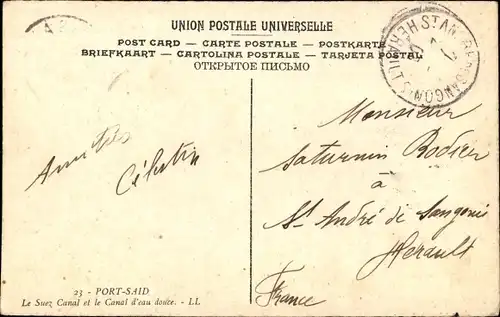 UNION POSTALE UNIVERSELLE
POST CARD — CARTE POSTALE — POSTKARTA
BRIEFKAART — CARTOLINA POSTALE — TARJETA POSTAL
ОТКРЫТОЕ ПИСЬМО
Monsieur
Saturnin Rodier
à
St André de Sangonis
Herault
France
Amitiés
Célestin
23 - PORT-SAID
Le Suez Canal et le Canal d'eau douce. - LL